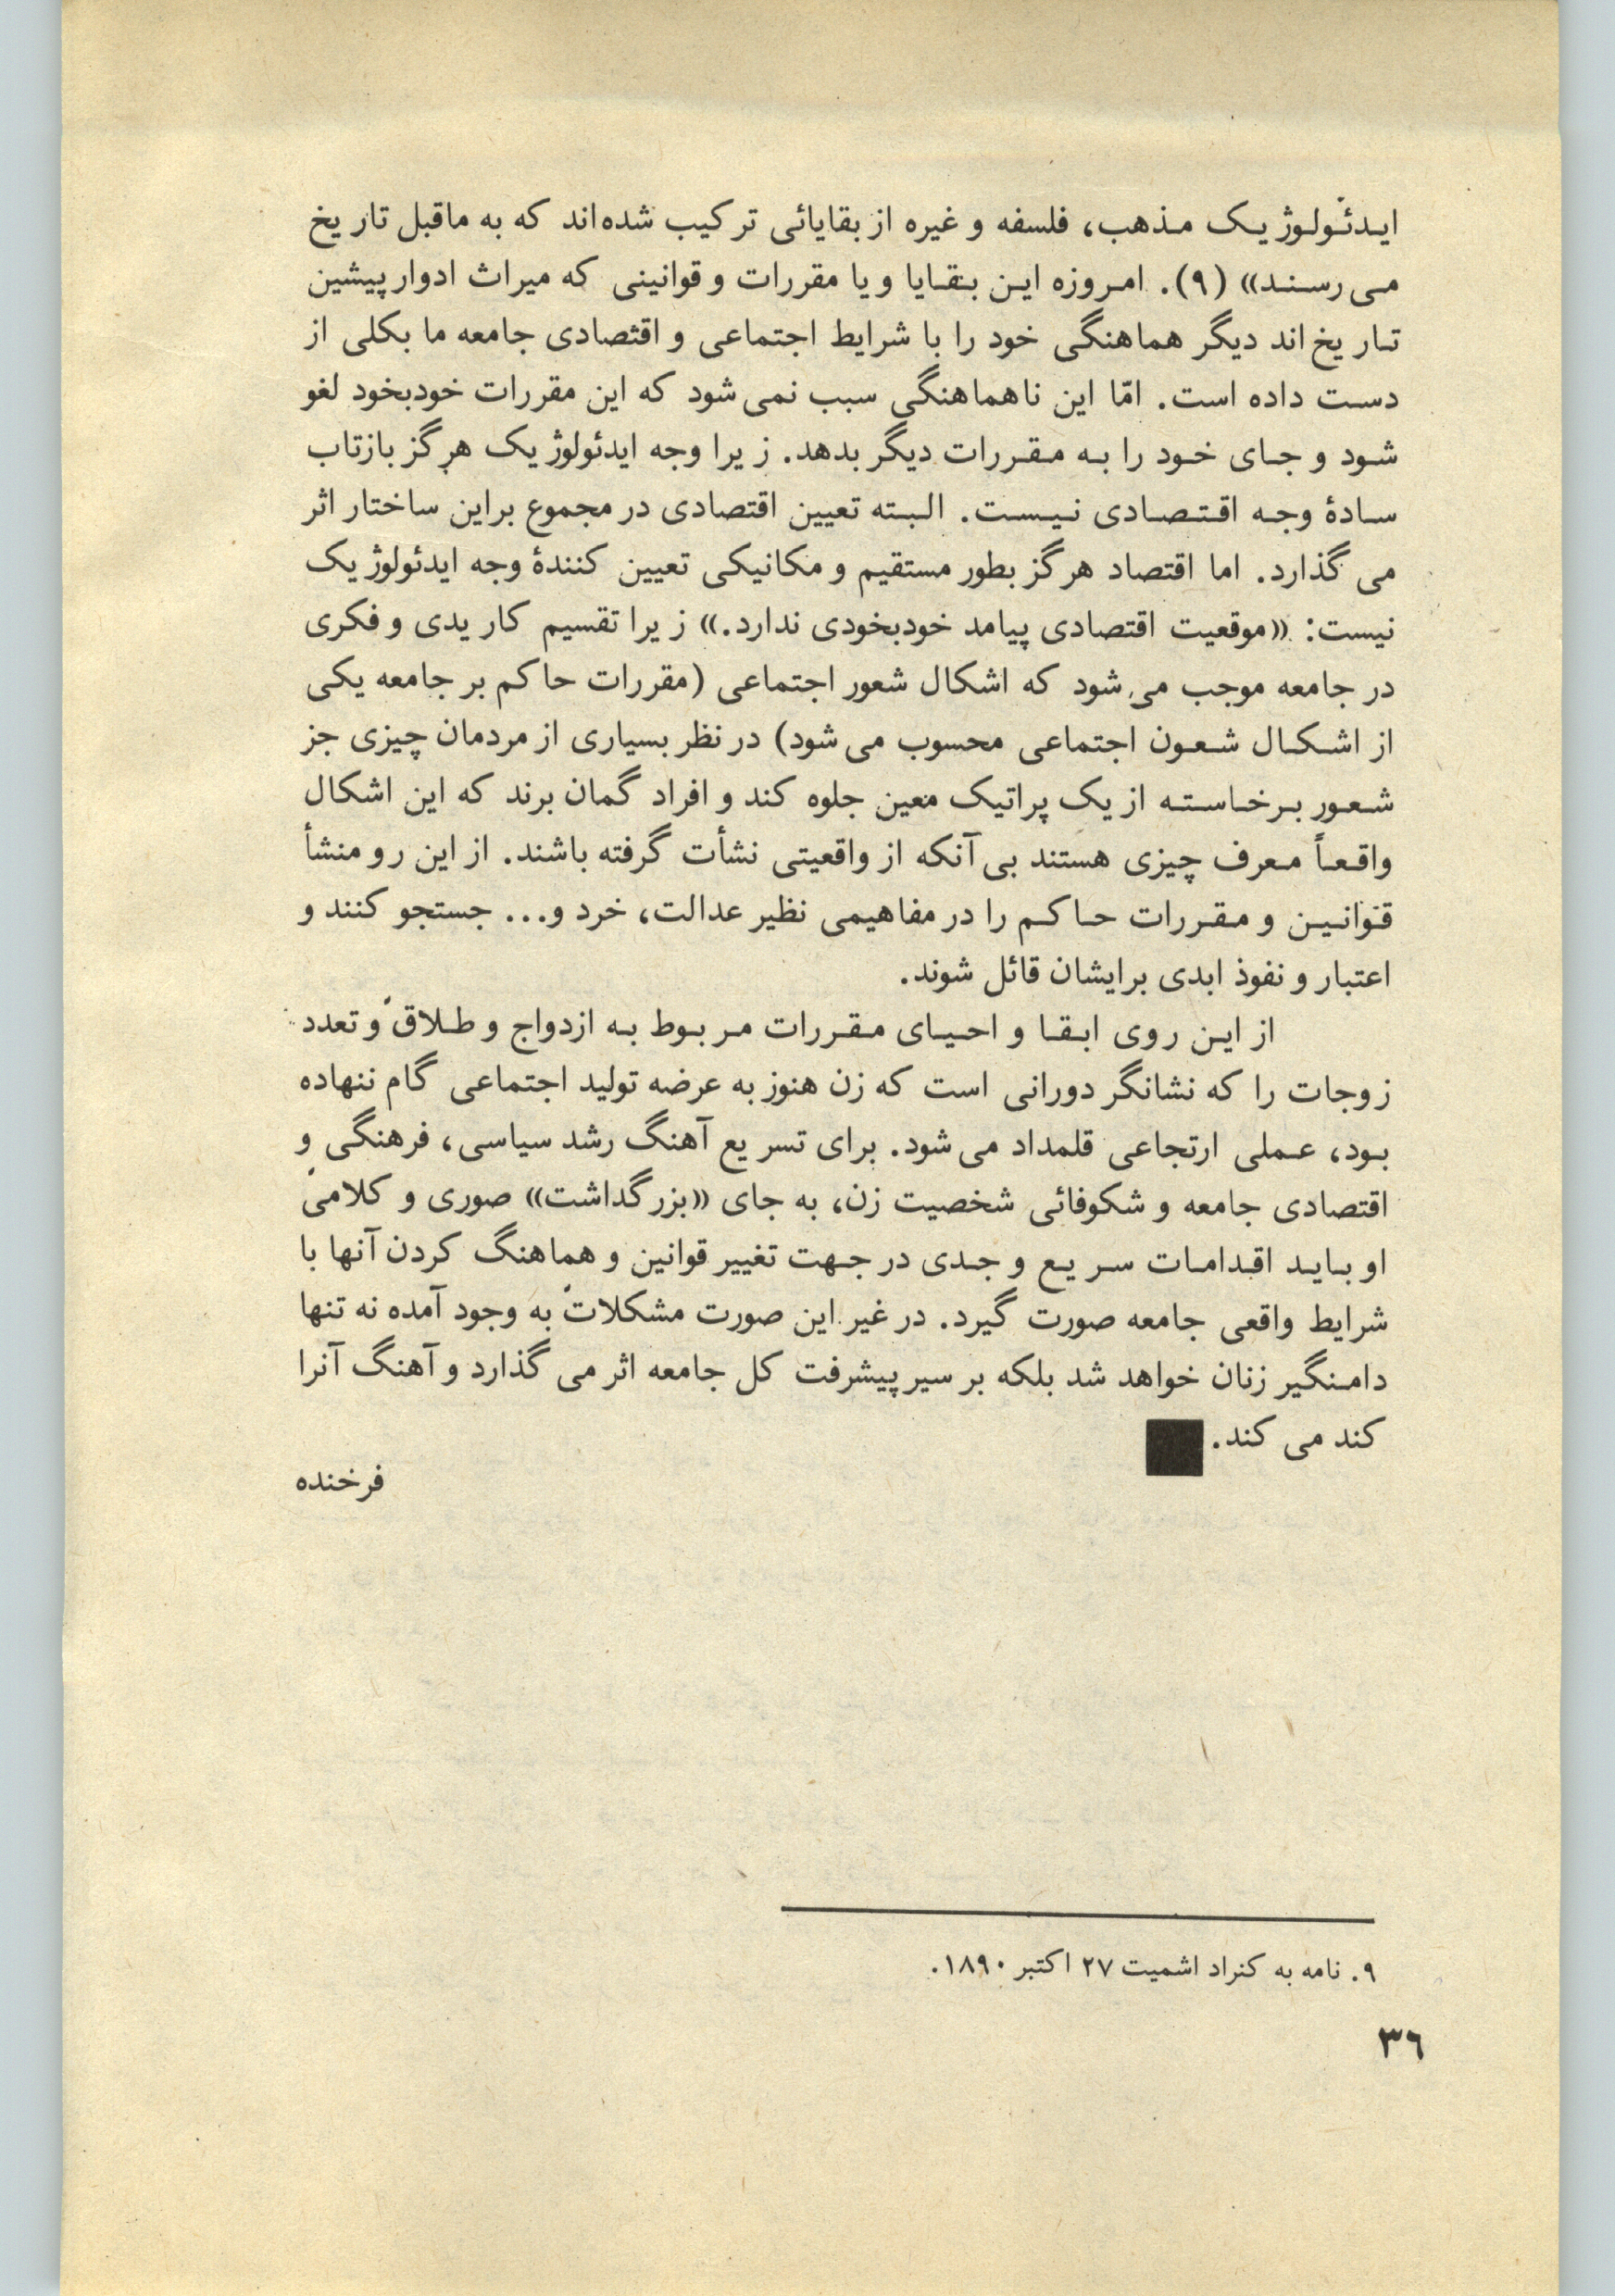 ایدئولوژیک مذهب، فلسفه و غیره از بقایائی ترکیب شده‌اند که به ماقبل تاریخ
می‌رسند» (۹). امروزه این بقایا و یا مقررات و قوانینی که میراث ادوار پیشین
تاریخ‌اند دیگر هماهنگی خود را با شرایط اجتماعی و اقتصادی جامعه ما بکلی از
دست داده است. امّا این ناهماهنگی سبب نمی‌شود که این مقررات خودبخود لغو
شود و جای خود را به مقررات دیگر بدهد. زیرا وجه ایدئولوژیک هرگز بازتاب
سادهٔ وجه اقتصادی نیست. البته تعیین اقتصادی در مجموع براین ساختار اثر
می‌گذارد. اما اقتصاد هرگز بطور مستقیم و مکانیکی تعیین کنندهٔ وجه ایدئولوژیک
نیست: «موقعیت اقتصادی پیامد خودبخودی ندارد.» زیرا تقسیم کار یدی و فکری
در جامعه موجب می‌شود که اشکال شعور اجتماعی (مقررات حاکم بر جامعه یکی
از اشکال شعون اجتماعی محسوب می‌شود) در نظر بسیاری از مردمان چیزی جز
شعور برخاسته از یک پراتیک معین جلوه کند و افراد گمان برند که این اشکال
واقعاً معرف چیزی هستند بی‌آنکه از واقعیتی نشأت گرفته باشند. از این رو منشأ
قوانین و مقررات حاکم را در مفاهیمی نظیر عدالت، خرد و... جستجو کنند و
اعتبار و نفوذ ابدی برایشان قائل شوند.
از این روی ابقا و احیای مقررات مربوط به ازدواج و طلاق و تعدد
زوجات را که نشانگر دورانی است که زن هنوز به عرضه تولید اجتماعی گام ننهاده
بود، عملی ارتجاعی قلمداد می‌شود. برای تسریع آهنگ رشد سیاسی، فرهنگی و
اقتصادی جامعه و شکوفائی شخصیت زن، به جای «بزرگداشت» صوری و کلامی
او باید اقدامات سریع و جدی در جهت تغییر قوانین و هماهنگ کردن آنها با
شرایط واقعی جامعه صورت گیرد. در غیر این صورت مشکلات به وجود آمده نه تنها
دامنگیر زنان خواهد شد بلکه بر سیر پیشرفت کل جامعه اثر می‌گذارد و آهنگ آنرا
کند می‌کند.
فرخنده
۹. نامه به کنراد اشمیت ۲۷ اکتبر ۱۸۹۰.
۳۶